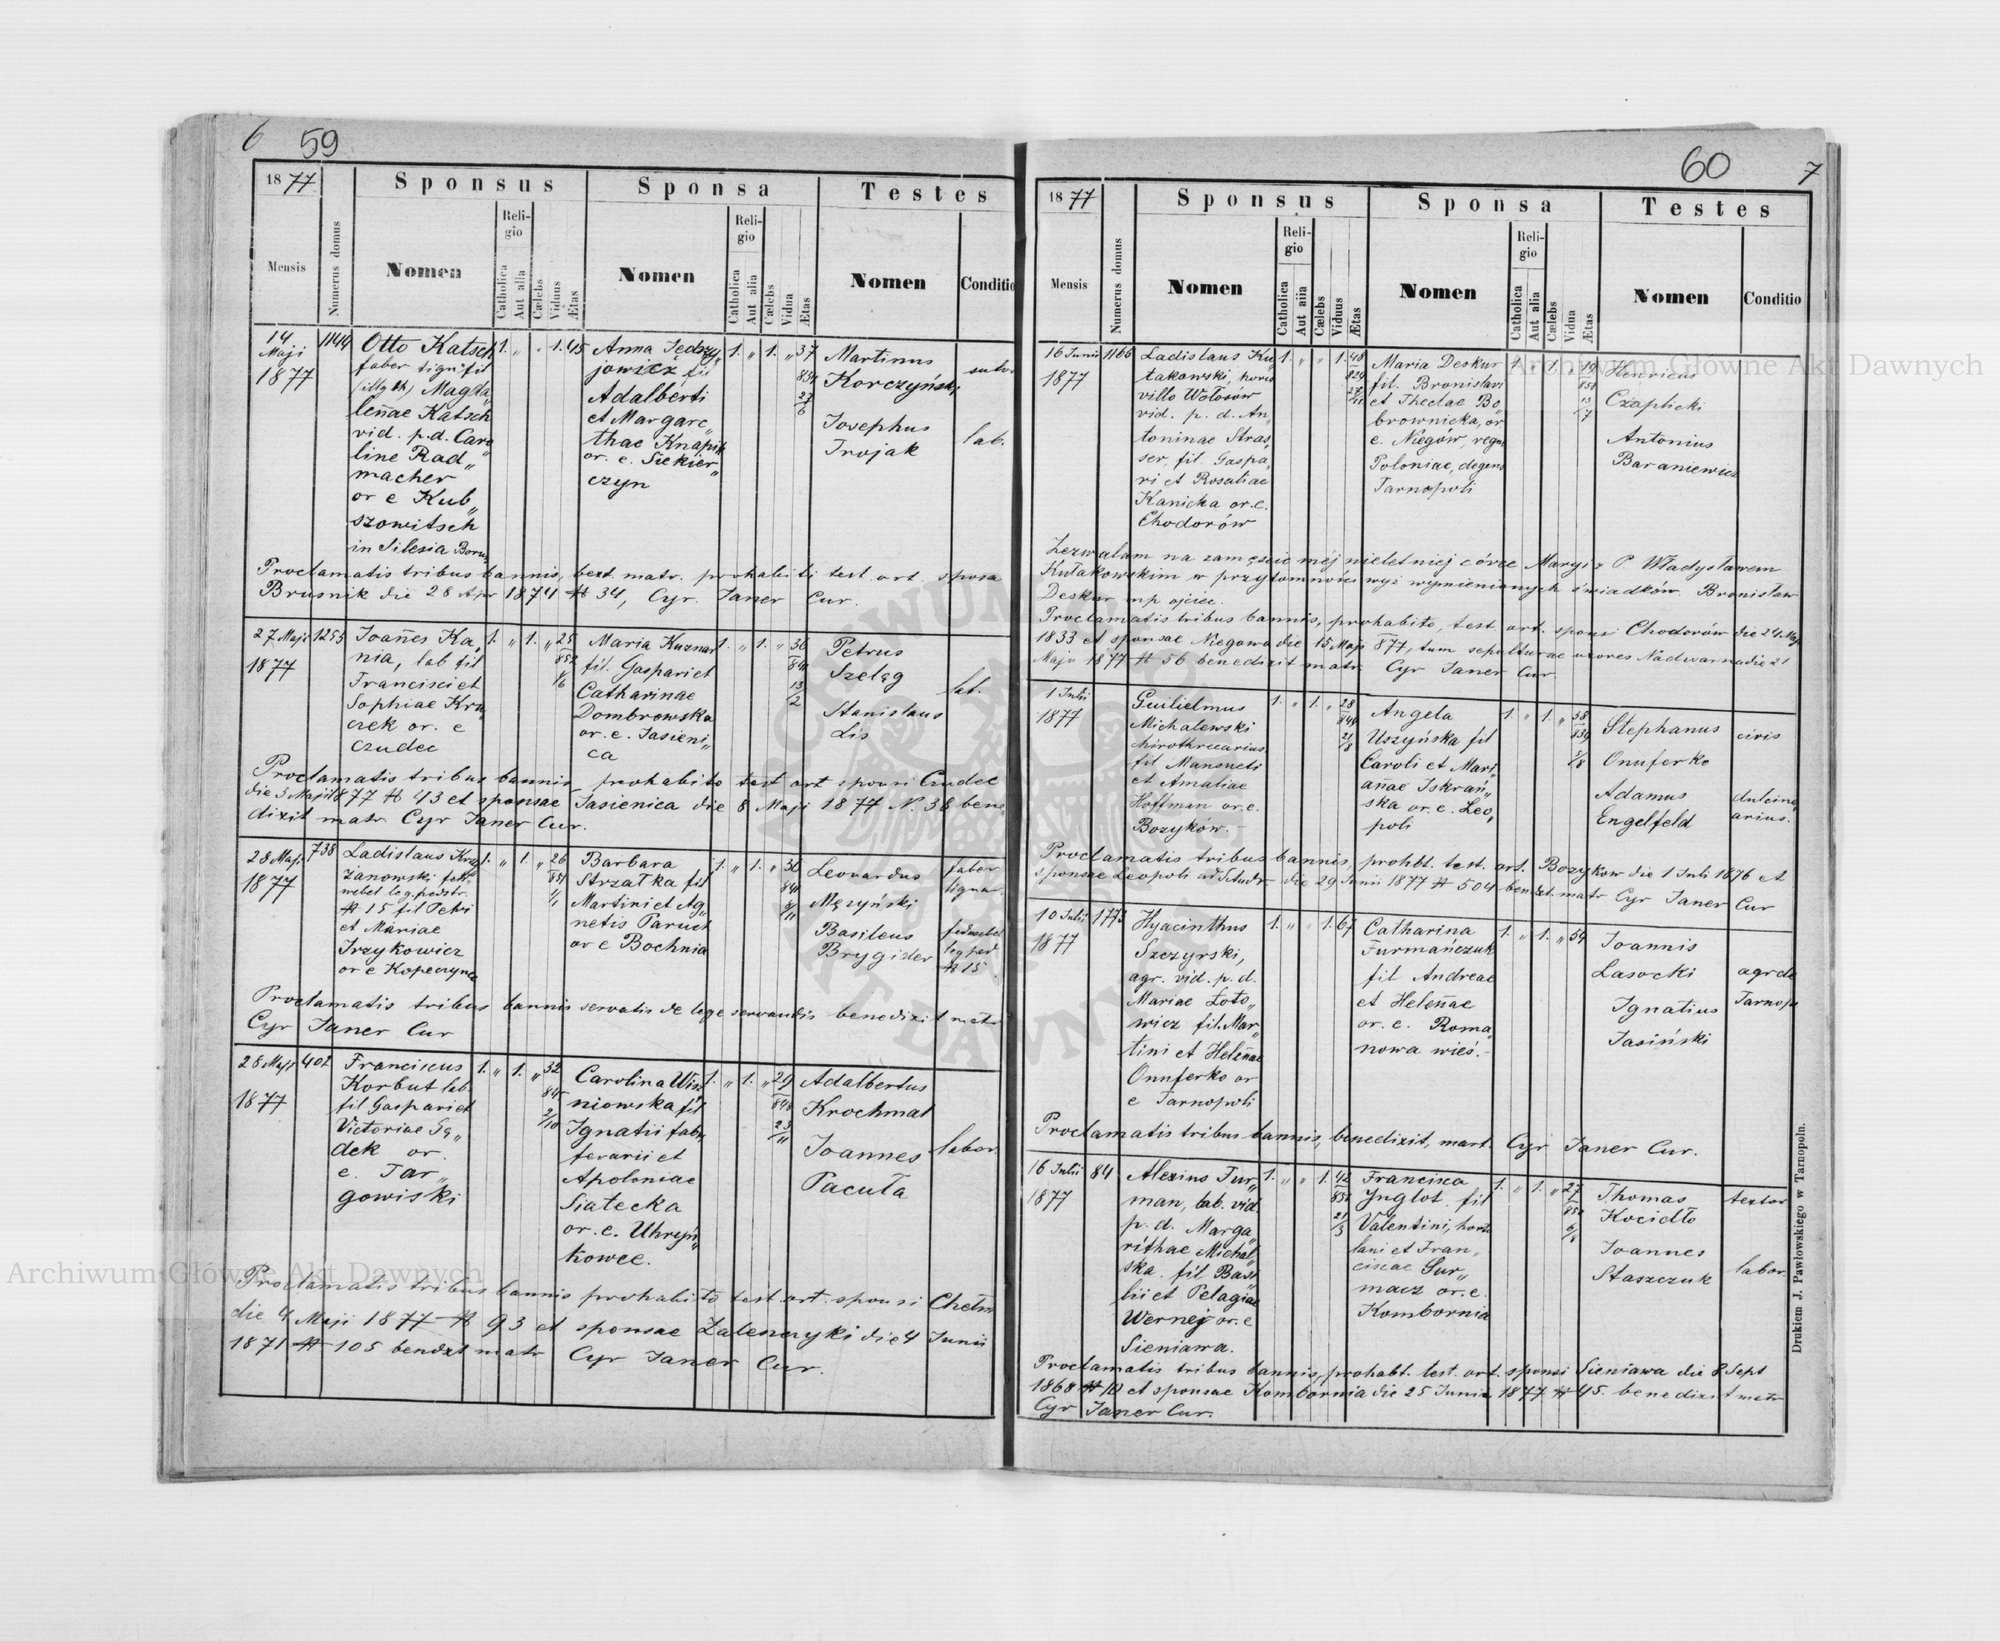 6 59
1877
Sponsus
Sponsa
Testes
Mensis
Numerus domus
Nomen
Religio
Catholica
Aut alia
Cælebs
Viduus
Ætas
Nomen
Religio
Catholica
Aut alia
Cælebs
Vidua
Ætas
Nomen
Conditio
14
Maji
1877
1144
Otto Katsch
faber lign. fil
Magda„
lenae Katsch
vid. p.d. Caro
line Rad„
macher
or e Kub„
szowitsch
in Silesia Borus
1. „ . 1. 45
Anna Jędrzy„
jowicz fil
Adalberti
et Margare„
thae Knapik
or. e. Siekier„
czyn
1. „ 1. „ 37
Martinus
Korczyński
Josephus
Trojak
sutor
lab.
Proclamatis tribus bannis, bext. matr. prohabiti test ort sposa
Brusnik die 28 Apr 1874 # 34, Cyr. Janer Cur.
27 Maji
1877
1255
Joañes Ka„
nia, lab fil
Francisci et
Sophiae Kru„
czek or. e
Czudec
1. „ 1. „ 25
Maria Kuznar
fil. Gaspari et
Catharinae
Dombrowska
or. e. Jasieni„
ca
1. „ 1. „ 36
Petrus
Szeląg
Stanislaus
Lis
lab.
Proclamatis tribus bannis, prohabito test ort sponsi Czudec
die 3 Maji 1877 # 43 et sponsae Jasienica die 8 Maji 1877 N. 38 bene
dixit matr. Cyr Janer Cur.
28 Maji
1877
738
Ladislaus Krzy„
zanowski feld„
webel leg. pedstr.
# 15 fil Petri
et Mariae
Trzykowicz
or e Kopeczynce
1. „ 1. „ 26
Barbara
Strzałka fil
Martini et Ag„
netis Paruch
or e Bochnia
1. „ 1. „ 36
Leonardus
Męzyński
Basileus
Brygider
faber
lignar.
feldwebel
leg ped
# 15
Proclamatis tribus bannis servatis de lege servandis benedixit matr
Cyr Janer Cur
28 Maji
1877
402
Franciscus
Korbut lab.
fil Gaspari et
Victoriae Są„
dek or.
e. Tar„
gowiski
1. „ 1. „ 32
Carolina Wisz
niowska fil
Ignatii fabr
ferarii et
Apoloniae
Siatecka
or. e. Uhryń„
kowce.
1. „ 1. „ 29
Adalbertus
Krochmal
Joannes
Pacuła
labor.
Proclamatis tribus bannis prohabito test. ort. sponsi Chełm
die 4 Maji 1877 # 93 et sponsae Zaleszczyki die 4 Junii
1871 # 105 bendxt matr Cyr Janer Cur.
60 7
1877
Sponsus
Sponsa
Testes
Mensis
Numerus domus
Nomen
Religio
Catholica
Aut aiia
Cælebs
Viduus
Ætas
Nomen
Religio
Catholica
Aut alia
Cælebs
Vidua
Ætas
Nomen
Conditio
16 Junii
1877
1166
Ladislaus Ku„
łakowski,
villo Wołosów
vid. p. d. An„
toninae Stras„
ser, fil. Gaspa„
ri et Rosaliae
Kanicka or. e.
Chodorów
1. „ „ 1. 48
Maria Deskur
fil. Bronislavi
et Theclae Bo„
brownicka, or
e. Niegów, regn.
Poloniae, degens
Tarnopoli
1. „ 1. „ 19
Henricus
Czaplicki
Antonius
Baraniewicz
Zezwalam na zamęście mej nieletniej córce Maryi z P Władysławem
Kułakowskim w przytomności wyż wymienionych świadków. Bronisław
Deskur mp ojciec.
Proclamatis tribus bannis, prohabito, test. ort. sponsi Chodorów die 24 Maji
1833 et sponsae Niegowa die 15 Maji 877, tum sepulturae uxores Nadwarna die 21
Maji 1877 # 56 benedixit matr. Cyr Janer Cur.
1 Julii
1877
Guilielmus
Michalewski
chirothecarius
fil Mansueti
et Amaliae
Hoffman or. e.
Bozyków.-
1. „ 1. „ 28
Angela
Uszyńska fil
Caroli et Mari„
añae Iskrań„
ska or. e. Leo„
poli
1. „ 1. „ 38
Stephanus
Onuferko
Adamus
Engelfeld
civis
dulcine„
arius.
Proclamatis tribus bannis, prohbt. test. ort. Bozykow die 1 Juli 1876 et
sponsae Leopoli die 29 Junii 1877 # 504 bendxt. matr Cyr Janer Cur
10 Julii
1877
1773
Hyacinthus
Szczyrski,
agr. vid. p. d.
Mariae Łoto„
wicz fil. Mar„
tini et Helenae
Onuferko or
e Tarnopoli
1. „ „ 1. 67
Catharina
Furmańczuk
fil Andreae
et Helenae
or. e. Roma
nowa wieś.-
1. „ 1. „ 59
Joannis
Lasocki
Ignatius
Jasiński
agrcla
Tarnop.
Proclamatis tribus bannis, benedixit, mart. Cyr Janer Cur.
16 Julii
1877
84
Alexius Fur„
man, lab. vid.
p. d. Marga„
rithae Michal„
ska. fil Basi
lii et Pelagiae
Wernej or. e
Sieniawa.
1. „ „ 1. 42
Francisca
Ynglot fil
Valentini, hortu
lani et Fran„
ciscae Sur„
macz or. e.
Kombornia
1. „ 1. „ 27
Thomas
Kocidło
Joannes
Staszczuk
textor
labor.
Proclamatis tribus bannis, prohabt. test. ort. sponsi Sieniawa die 8 Sept
1868 # 10 et sponsae Kombornia die 25 Junii 1877 # 45. benedixit matr
Cyr Janer Cur.
Drukiem J. Pawłowskiego w Tarnopoln.
Archiwum Główne Akt Dawnych
Archiwum Główne Akt Dawnych